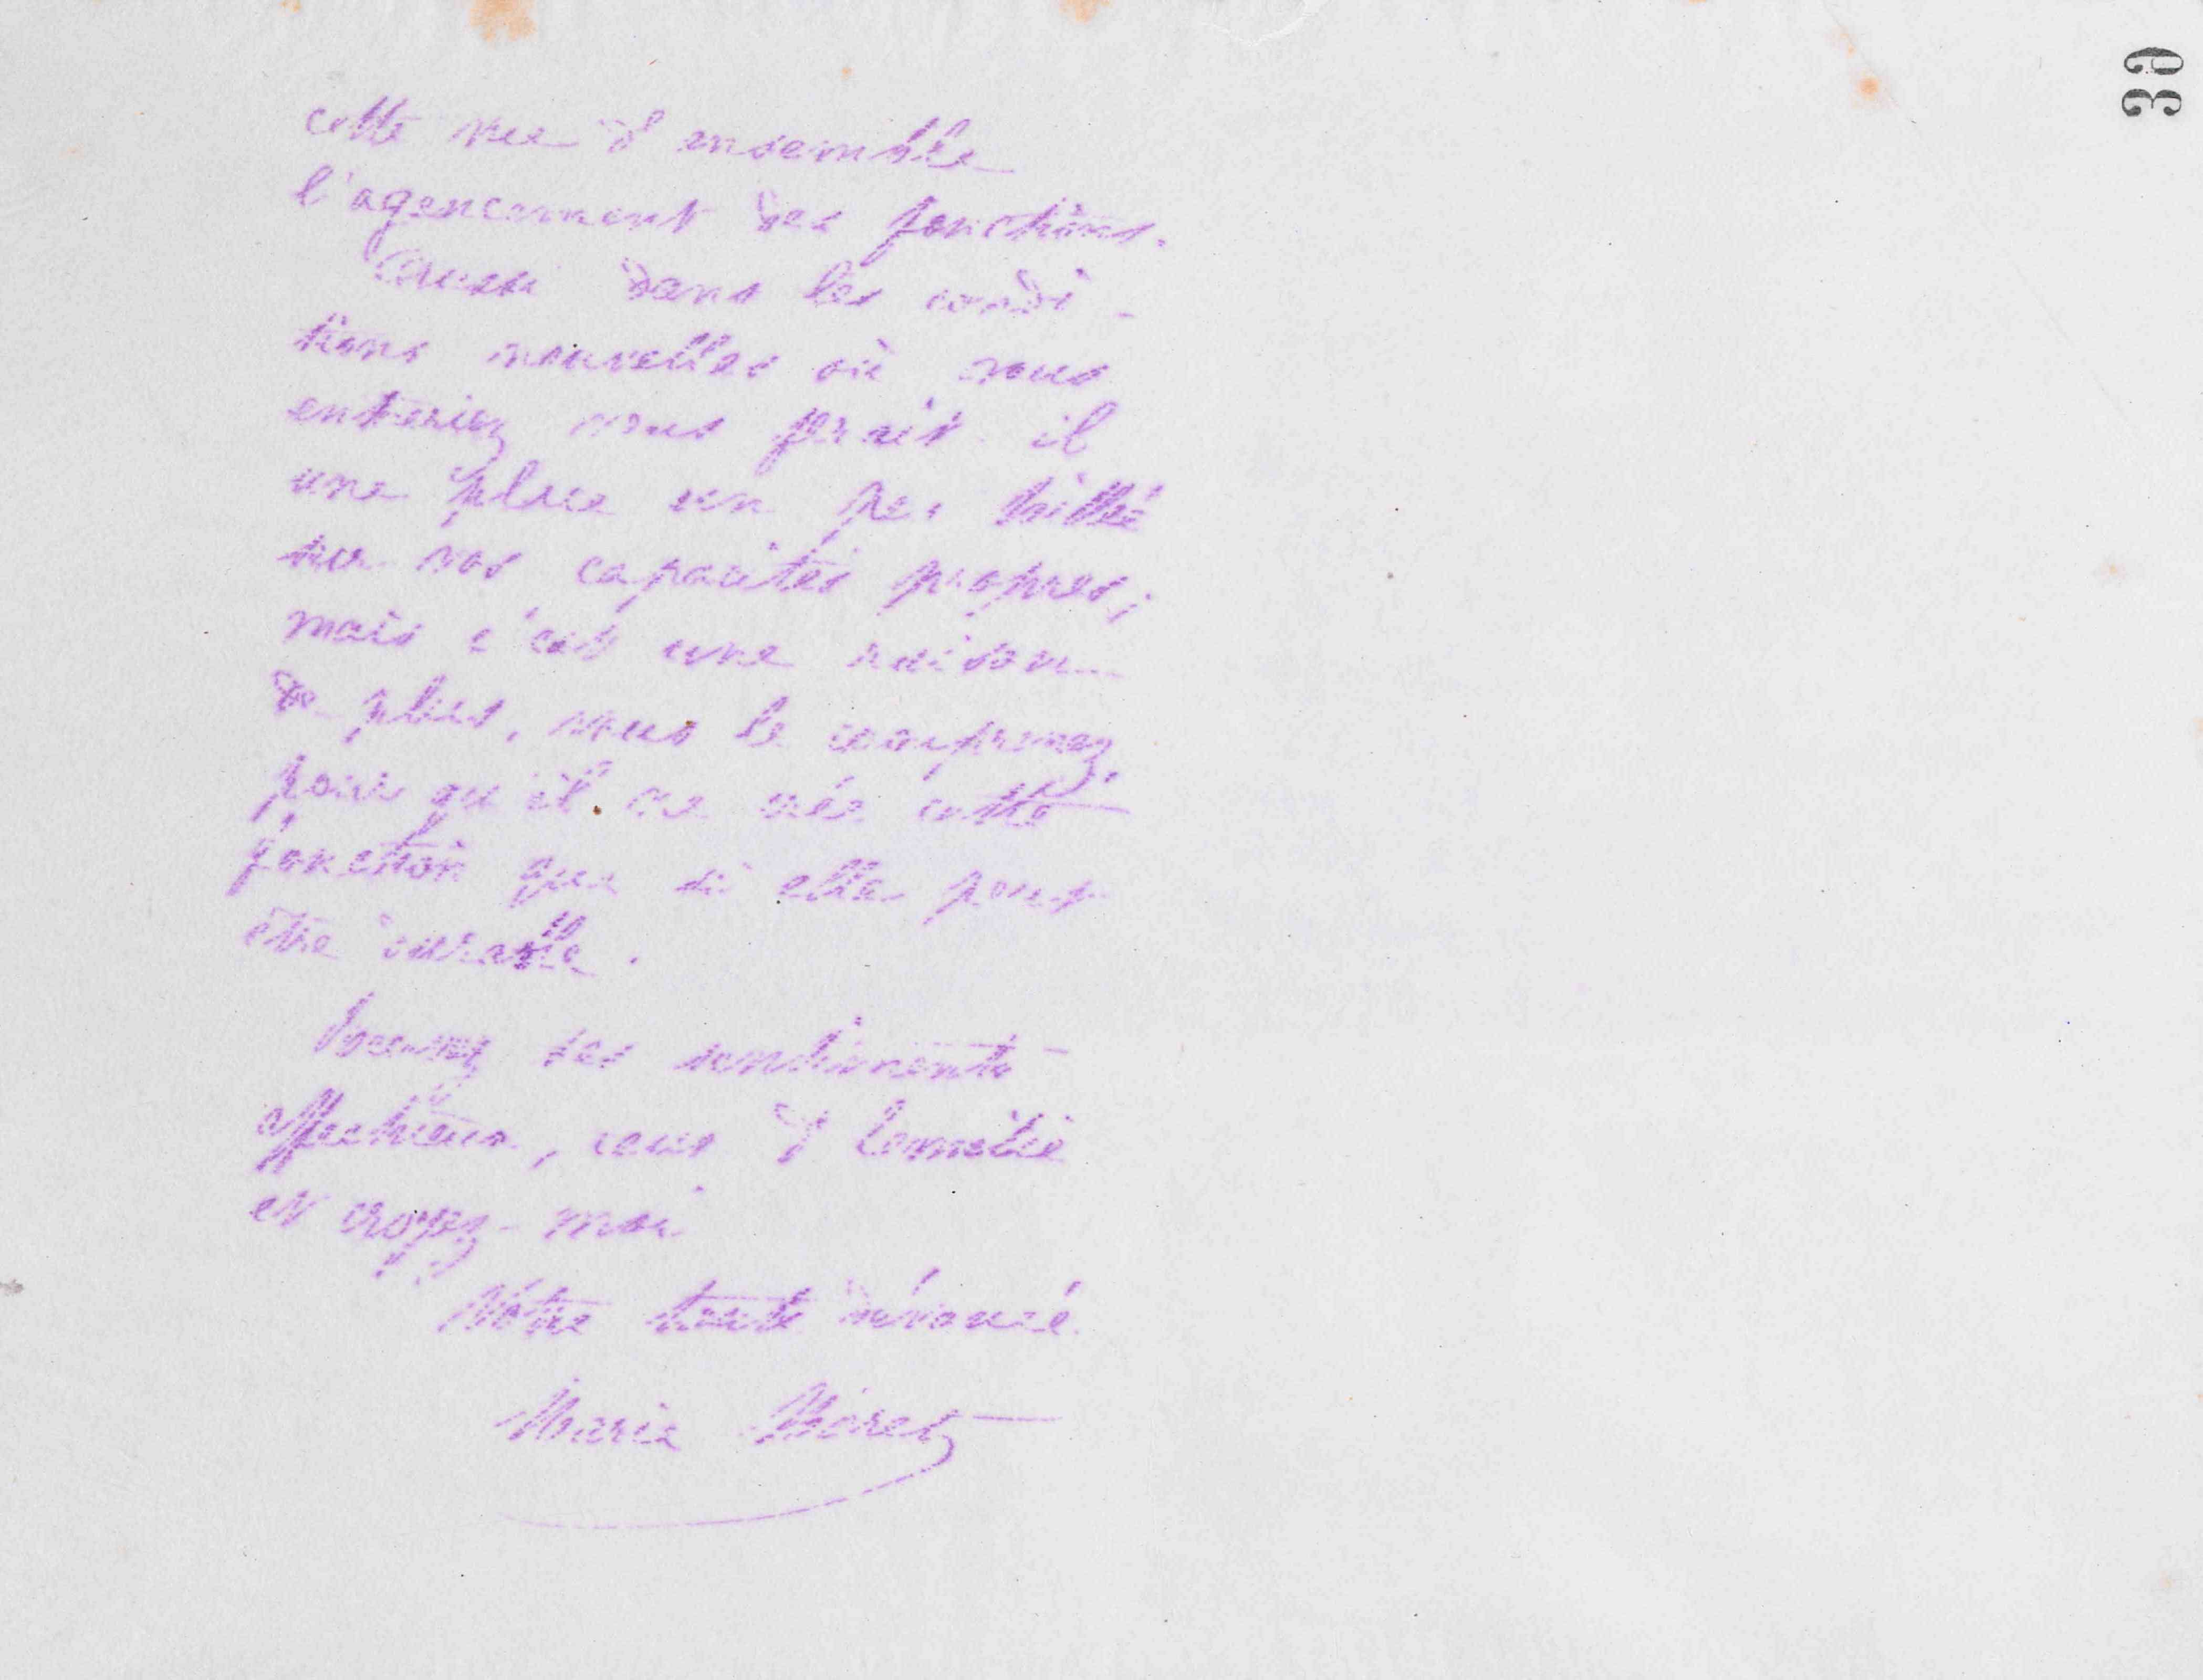 cette vue d'ensemble
l'agencement des fonctions.
Aussi dans les condi-
tions nouvelles où vous
entreriez vous ferait il
une place un peu taillée
sur vos capacités propres;
mais c'est une raison
de plus, vous le comprenez,
pour qu'il ne crée cette
fonction que si elle peut
être durable.
Recevez les sentiments
affectueux, ceux d'Emilie
et croyez-moi
Vôtre toute dévouée
Marie Moret
30